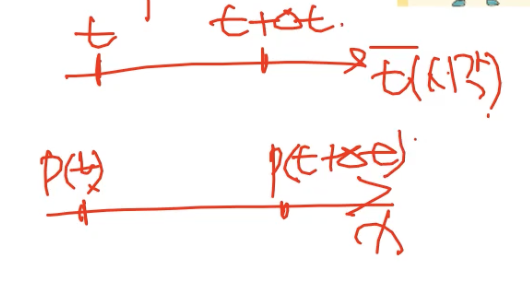 t t+Δt
t(시각)
P(t) P(t+Δt)
x